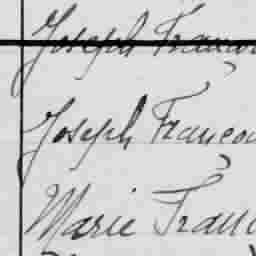 Joseph Françoi
Joseph Françoi
Marie Franç